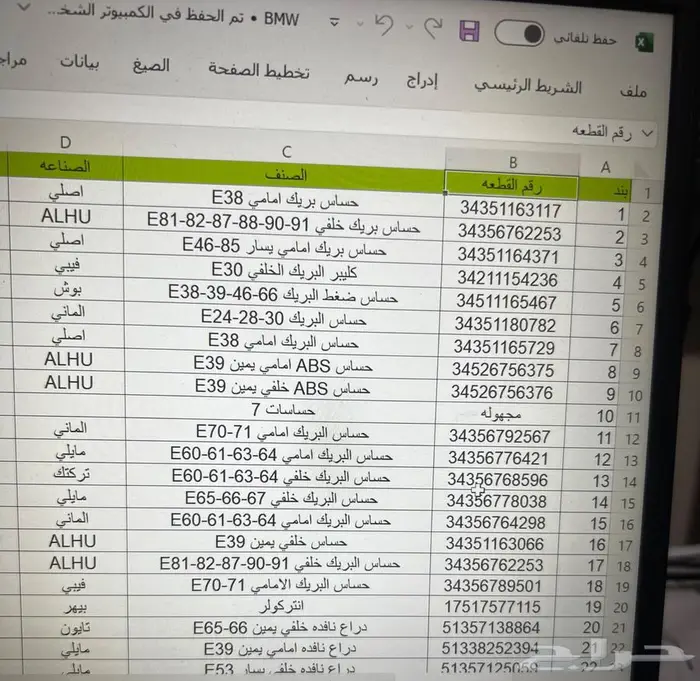 حفظ تلقائي BMW • تم الحفظ في الكمبيوتر الشخـ...
ملف الشريط الرئيسي إدراج رسم تخطيط الصفحة الصيغ بيانات مراجـ
رقم القطعه
A B C D
1 بند رقم القطعه الصنف الصناعه
2 1 34351163117 حساس بريك امامي E38 اصلي
3 2 34356762253 حساس بريك خلفي E81-82-87-88-90-91 ALHU
4 3 34351164371 حساس بريك امامي يسار E46-85 اصلي
5 4 34211154236 كليبر البريك الخلفي E30 فيبي
6 5 34511165467 حساس ضغط البريك E38-39-46-66 بوش
7 6 34351180782 حساس البريك E24-28-30 الماني
8 7 34351165729 حساس البريك امامي E38 اصلي
9 8 34526756375 حساس ABS امامي يمين E39 ALHU
10 9 34526756376 حساس ABS خلفي يمين E39 ALHU
11 10 مجهوله حساسات 7
12 11 34356792567 حساس البريك امامي E70-71 الماني
13 12 34356776421 حساس البريك امامي E60-61-63-64 مايلي
14 13 34356768596 حساس البريك خلفي E60-61-63-64 تركتك
15 14 34356778038 حساس البريك خلفي E65-66-67 مايلي
16 15 34356764298 حساس البريك امامي E60-61-63-64 الماني
17 16 34351163066 حساس خلفي يمين E39 ALHU
18 17 34356762253 حساس البريك خلفي E81-82-87-90-91 ALHU
19 18 34356789501 حساس البريك الامامي E70-71 فيبي
20 19 17517577115 انتركولر بيهر
21 20 51357138864 دراع نافذه خلفي يمين E65-66 تايون
22 21 51338252394 دراع نافذه امامي يمين E39 مايلي
22 51357125059 دراع نافذه خلفي يسار E53 مايلي
حراج